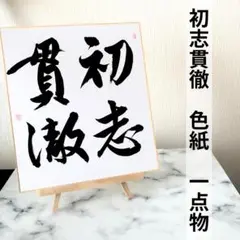 初志
貫徹
初志貫徹　色紙　一点物